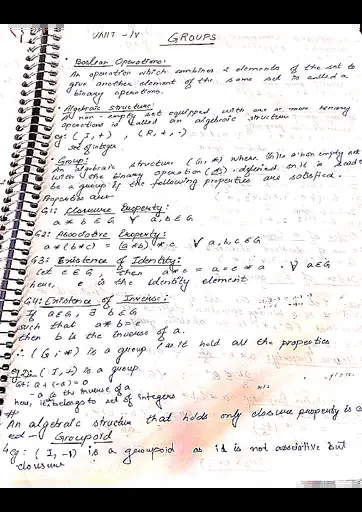 UNIT - IV
GROUPS
• Boolean Operations:
An operation which combines 2 elements of the set to
give another element of the same set is called a
binary operations.
• Algebraic structure:
A non-empty set equipped with one or more binary
operations is called an algebraic structure
eg: ( I, + ) , ( R, + , . )
Set of integer
• Group:
An algebraic structure (G, *) where (G) is a non empty set
with the binary operation (*), defined on it is said to
be a group if the following properties are satisfied.
Properties are
G1: Closure Property:
a * b ∈ G ∀ a, b ∈ G
G2: Associative Property:
a * (b * c) = (a * b) * c ∀ a, b, c ∈ G
G3: Existence of Identity:
let e ∈ G, then a * e = a = e * a . ∀ a ∈ G
here, e is the identity element
G4: Existence of Inverse:
If a ∈ G, ∃ b ∈ G
such that a * b = e
then b is the inverse of a.
∴ (G, *) is a group ! as it hold all the properties
eg: ( I, + ) is a group.
G4: a + (-a) = 0
-a is the inverse of a
here, it belongs to set of integers
#
An algebraic structure that holds only closure property is
ed - Groupoid
eg: ( I, - ) is a groupoid as id is not assoitive but
closure